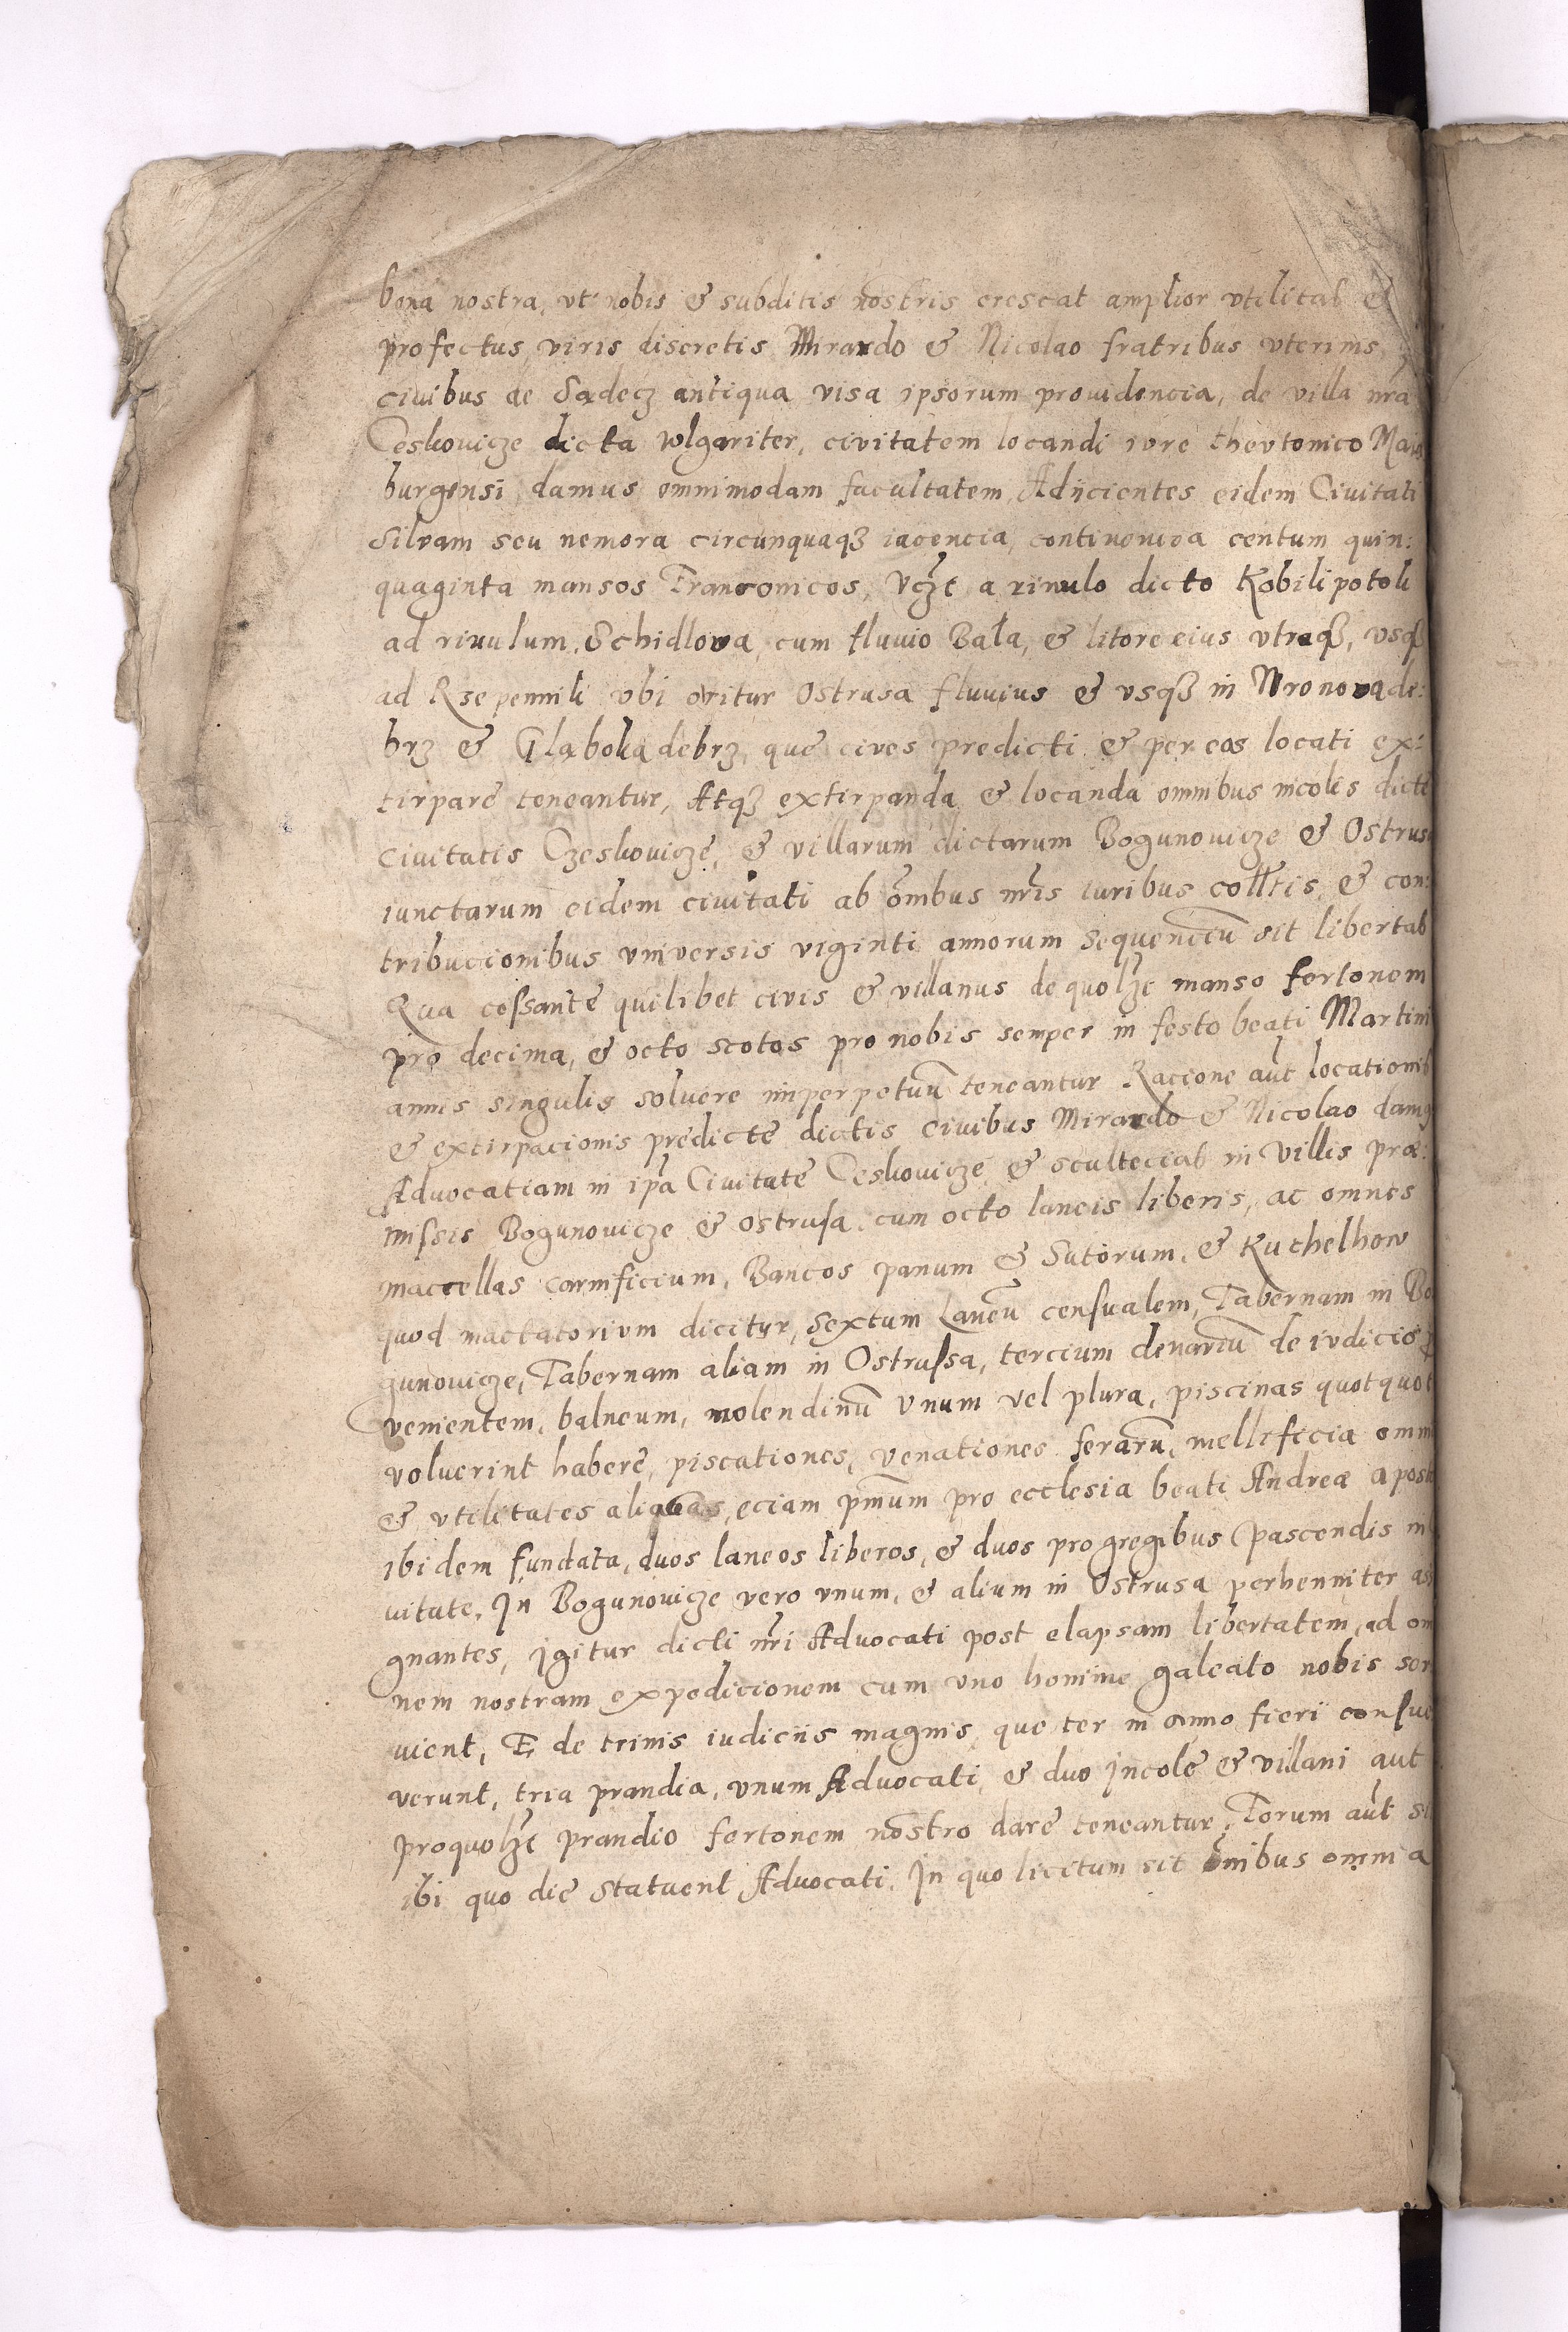 bona nostra, vt nobis & subditis nostris crescat amplior vtilitas &
profectus, viris discretis Mirardo & Nicolao fratribus vterinis,
civibus de Sadecz antiqua visa ipsorum providencia, de villa nrã
Ceskovicze dicta wlgariter, civitatem locandi iure thevtonico
burgensi damus omnimodam facultatem, Adiicientes eidem Civitati
Silvam seu nemora circunquaqȝ iacencia, continencia centum quin:
quaginta mansos Franconicos, Vczt a rivulo dicto Kobili potok
ad rivulum, Schidlova, cum fluvio Bała, & litore eius vtraqȝ, vsqȝ
ad Rsepennik vbi oritur Ostrusa fluvius & vsqȝ in Wronovade:
brz & Glabokadebrz, que cives predicti & per eos locati ex:
tirpare teneantur, Atqȝ extirpanda & locanda omnibus incolis dicte
civitatis Czeskovicze, & villarum dictarum Bogunovicze & Ostrus
iunctarum eidem civitati ab õmbus nrĩs iuribus collẽtis, & con:
tribucionibus vniversis viginti annorum sequenciũ sit libertas
Qua cessante quilibet civis & villanus de quolȝt manso fertonem
pro decima, & octo scotos pro nobis semper in festo beati Martini
annis singulis solvere imperpetuũ teneantur Racione aũt locationis
& extirpacionis predicte dictis civibus Mirardo & Nicolao damus
Advocatiam in ipã Civitate Ceskovicze & scultecias in Villis præ:
missis Bogunovicze & Ostrusa cum octo laneis liberis, ac omnes
maccellas carnificium, Bancos panum & Sutorum, & Kuthelhow
quod mactatorium dicitur, Sextum Laneũ censualem, Tabernam in Bo
gunovicze, Tabernam aliam in Ostrussa, tercium denariũ de iudicio
venientem, balneum, molendinũ vnum vel plura, piscinas quotquot
voluerint habere, piscationes, venationes ferarũ, mellificia omni
& vtilitates aliquas, eciam pm̃um pro ecclesia beati Andreæ apost
ibidem fundata, duos laneos liberos, & duos pro gregibus pascendis in
vitate, In Bogunovicze vero vnum, & alium in Ostrusa perhenniter as
gnantes, Igitur dicti nrĩ Advocati post elapsam libertatem, ad om
nem nostram expedicionem cum vno homine galeato nobis ser
vient, Et de trinis iudiciis magnis que ter in anno fieri consue
verunt, tria prandia, vnum Advocati, & duo Incole & villani aut
pro quolȝt prandio fertonem nostro dare teneantur, Forum aũt si
ibi quo die statuent Advocati, In quo licitum sit õnibus omnia